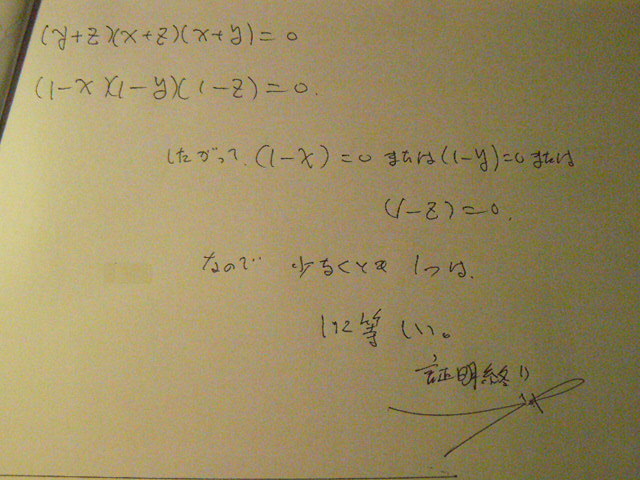 (y+z)(x+z)(x+y)=0
(1-x)(1-y)(1-z)=0.
したがって、(1-x)=0 または(1-y)=0または
(1-z)=0.
なので 少なくとも 1つは、
1に等しい。
証明終り